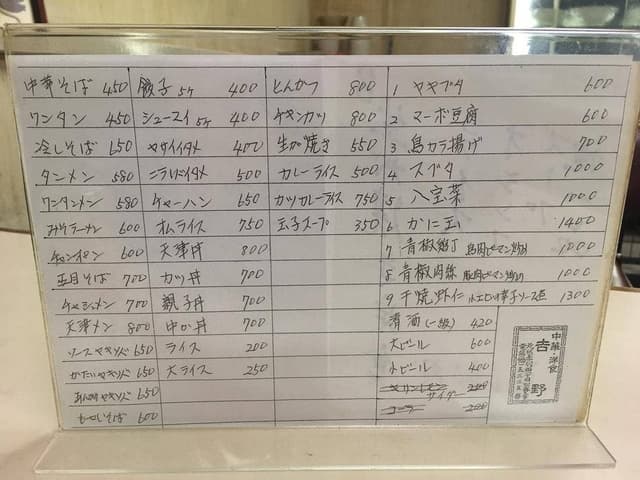 中華そば 450
ワンタン 450
冷しそば 650
タンメン 580
ワンタンメン 580
みそラーメン 600
チャンポン 600
五目そば 700
チャシュメン 700
天津メン 800
ソースヤキソバ 650
かたいヤキソバ 650
あんかけヤキソバ 650
もやしそば 600
餃子 5ヶ 400
シュースイ 5ヶ 400
ヤサイイタメ 400
ニラレバイタメ 500
チャーハン 650
オムライス 750
天津丼 800
カツ丼 700
親子丼 700
中か丼 700
ライス 200
大ライス 250
とんかつ 800
チキンカツ 800
生が焼き 550
カレーライス 500
カツカレーライス 750
玉子スープ 350
1 ヤキブタ 600
2 マーボ豆腐 600
3 鳥カラ揚げ 700
4 スブタ 1000
5 八宝菜 1000
6 かに玉 1400
7 青椒鶏丁 鳥肉ピーマン炒め 1000
8 青椒肉絲 豚肉ピーマン炒め 1000
9 干焼虾仁 小エビの辛子ソース煮 1300
清酒(一級) 420
大ビール 600
小ビール 400
サイダー 200
コーラ 200
中華・洋食
吉野